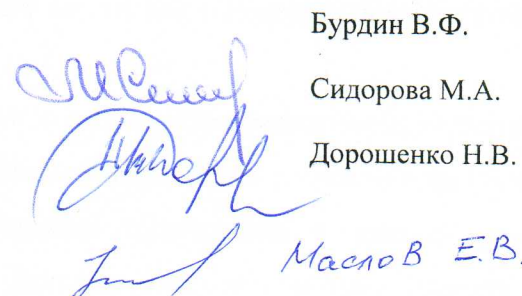 Бурдин В.Ф.
Сидорова М.А.
Дорошенко Н.В.
Маслов Е.В.